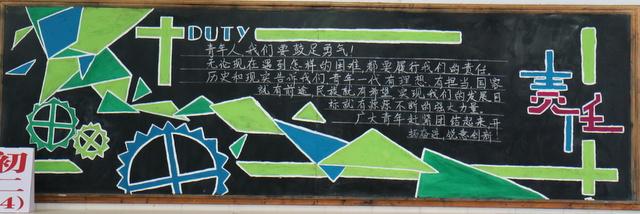 DUTY
青年人,我们要鼓足勇气!
无论现在遇到怎样的困难,都要履行我们的责任.
历史和现实告诉我们青年一代有理想,有担当,国家
就有前途,民族就有希望,实现我们的发展目
标就有源源不断的强大力量.
广大青年赶紧团结起来,开
拓奋进,锐意创新
责任
初二
4)